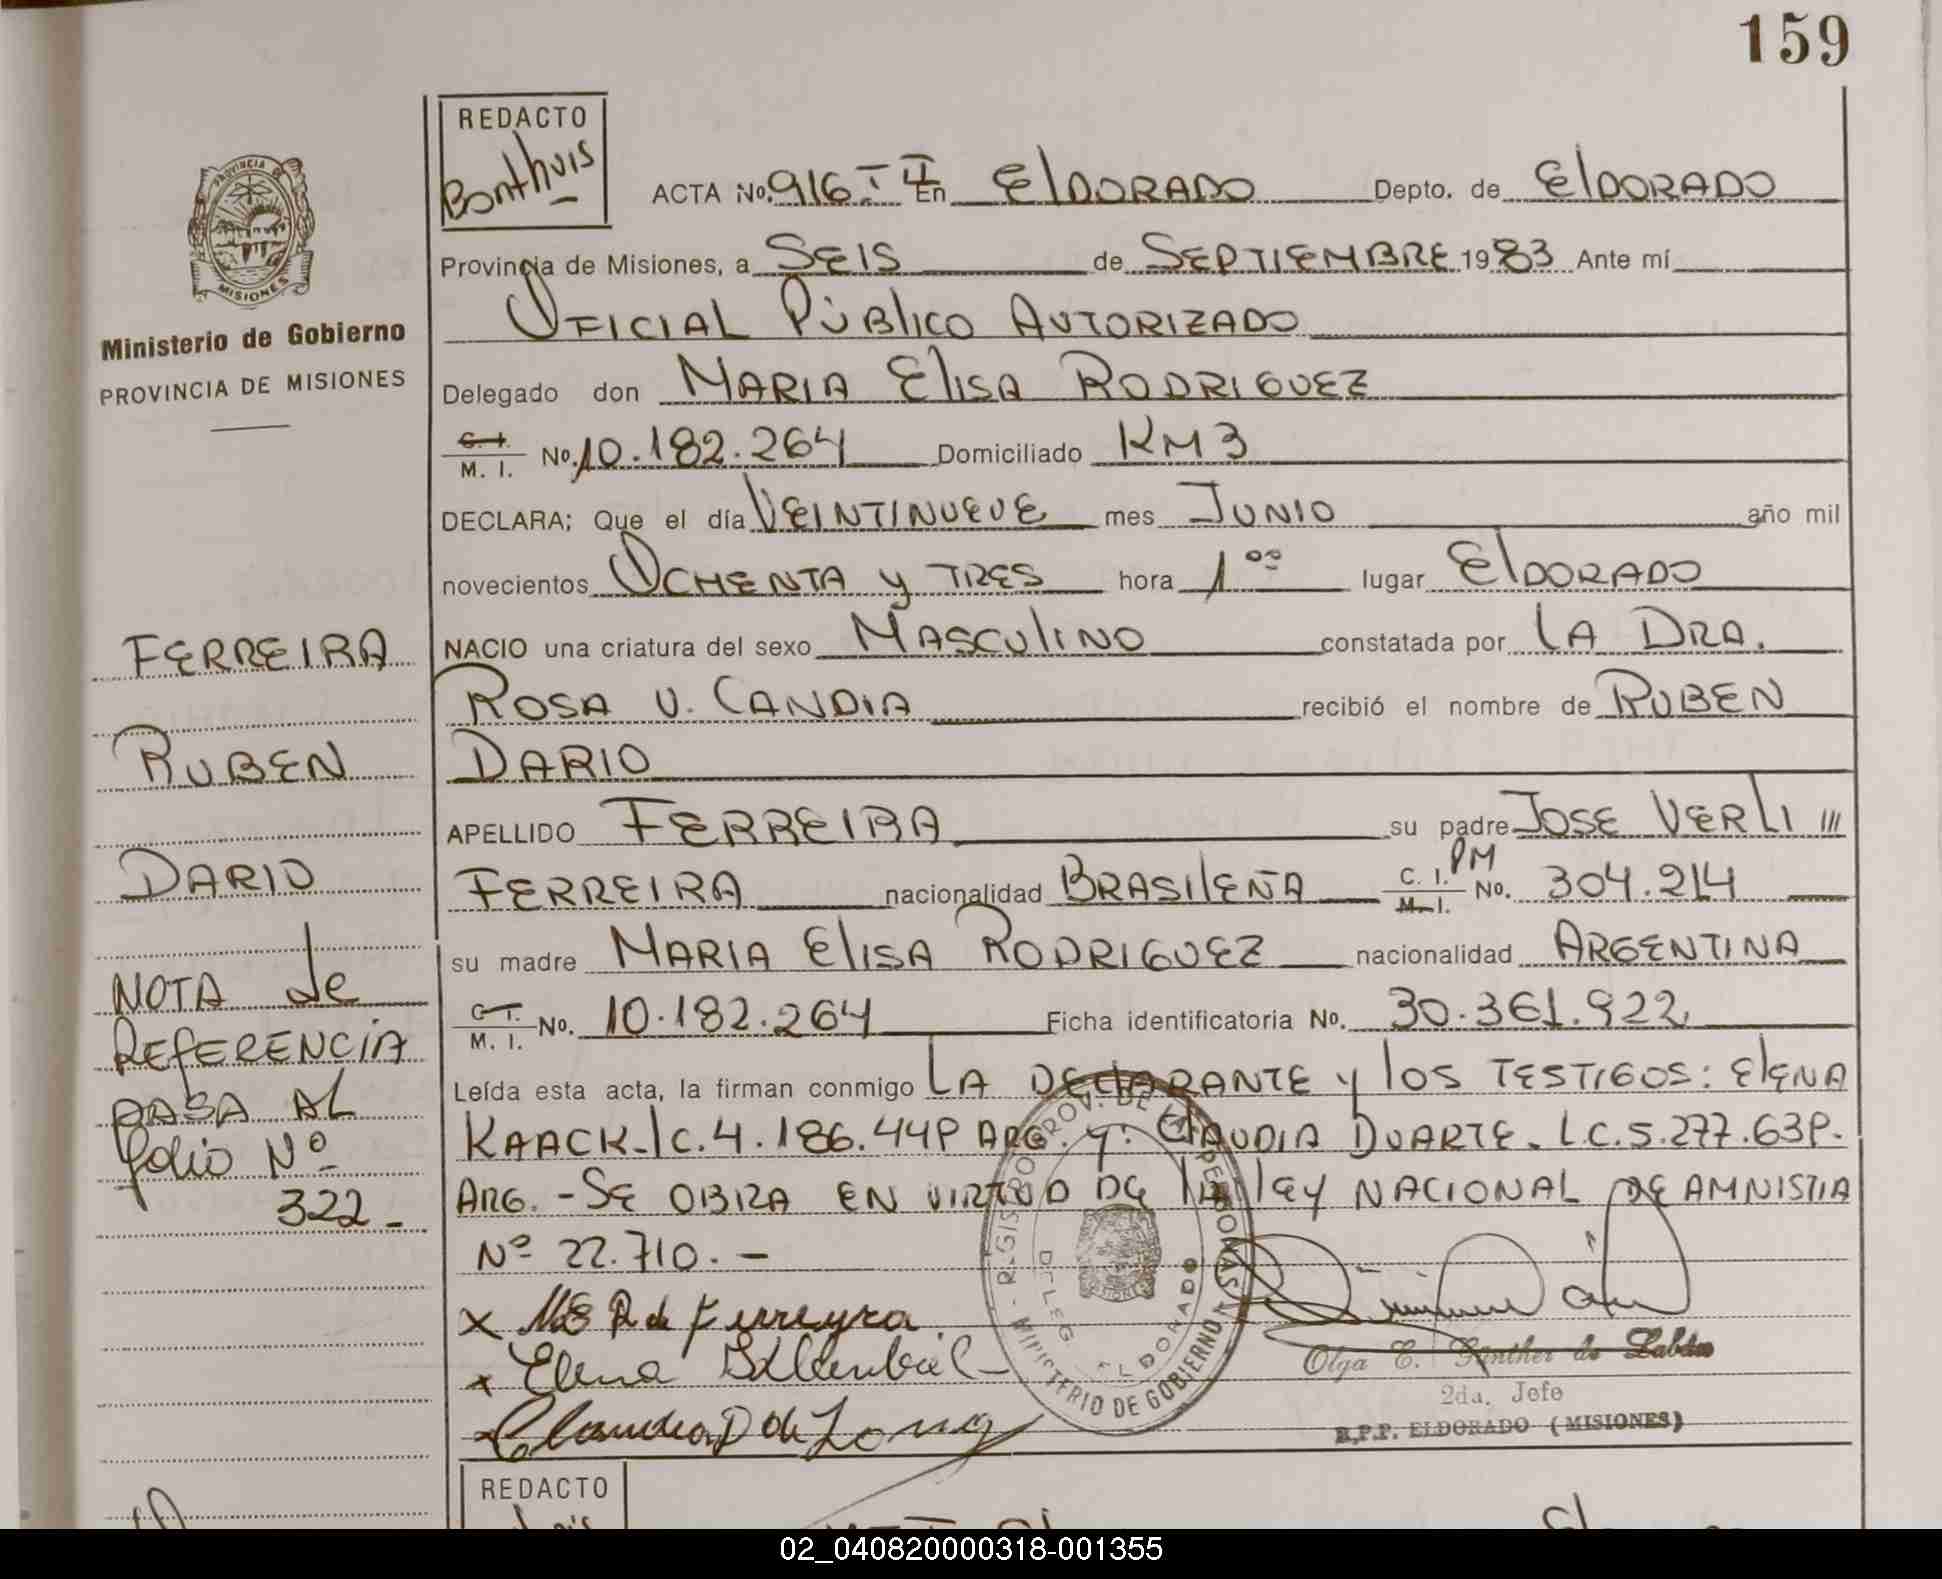 159
REDACTO
Bonthuis
ACTA No. 916. T II En ElDORADO Depto. de ElDORADO
Provincia de Misiones, a SEIS de SEPTIEMBRE 1983 Ante mí
OFICIAL PÚBlICO AUTORIZADO
Delegado don MARIA ElISA RODRIGUEZ
C. I. M. I. No. 10.182.264 Domiciliado KM 3
DECLARA; Que el día VEINTINUEVE mes JUNIO año mil
novecientos OCHENTA y TRES hora 1 00 lugar ElDORADO
NACIO una criatura del sexo MASCUlINO constatada por lA DRA.
ROSA V. CANDIA recibió el nombre de RUBEN
DARIO
APELLIDO FERREIRA su padre JOSE VERLI
FERREIRA nacionalidad BRASIlEÑA C. I. M. I. PM No. 304.214
su madre MARIA ElISA RODRIGUEZ nacionalidad ARGENTINA
C. I. M. I. No. 10.182.264 Ficha identificatoria No. 30.361.922
Leída esta acta, la firman conmigo LA DEClARANTE y lOS TESTIGOS: ElENA
KAACK-lC.4.186.449 ARG. y: ClAUDIA DUARTE. L.C.5.277.639.
ARG. - SE OBRA EN VIRTUD DE lA lEY NACIONAL DE AMNISTIA
Nº 22.710. -
x M E R de Ferreyra
x Elena
Claudia D de
PROVINCIA DE
MISIONES
Ministerio de Gobierno
PROVINCIA DE MISIONES
FERREIRA
RUBEN
DARIO
NOTA de
REFERENCIA
PASA AL
folio Nº
322 -
REGISTRO PROV. DE LAS PERSONAS
MINISTERIO DE GOBIERNO
DELEG. ELDORADO
Olga E. Günther de
2da. Jefe
R.P.P. ELDORADO (MISIONES)
REDACTO
02_040820000318-001355